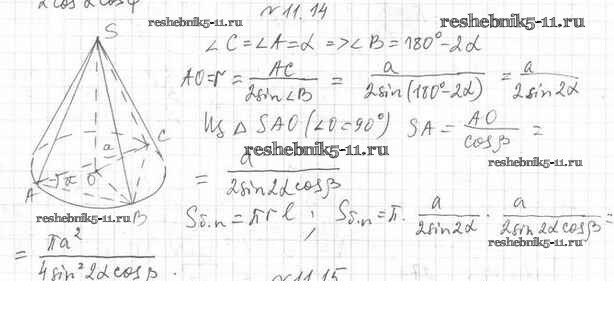 2cosα cosφ
№11.14
reshebnik5-11.ru
S
∠C=∠A=α => ∠B=180°-2α
reshebnik5-11.ru
AO=r= AC/2sin∠B = a/2sin(180°-2α) = a/2sin2α
Из △SAO (∠O=90°) SA= AO/cosβ =
reshebnik5-11.ru
= a/2sin2αcosβ
a
C
A
O
B
reshebnik5-11.ru
Sб.п=πrl; Sб.п=π· a/2sin2α · a/2sin2αcosβ =
reshebnik5-11.ru
= πa²/4sin²2αcosβ .
№11.15